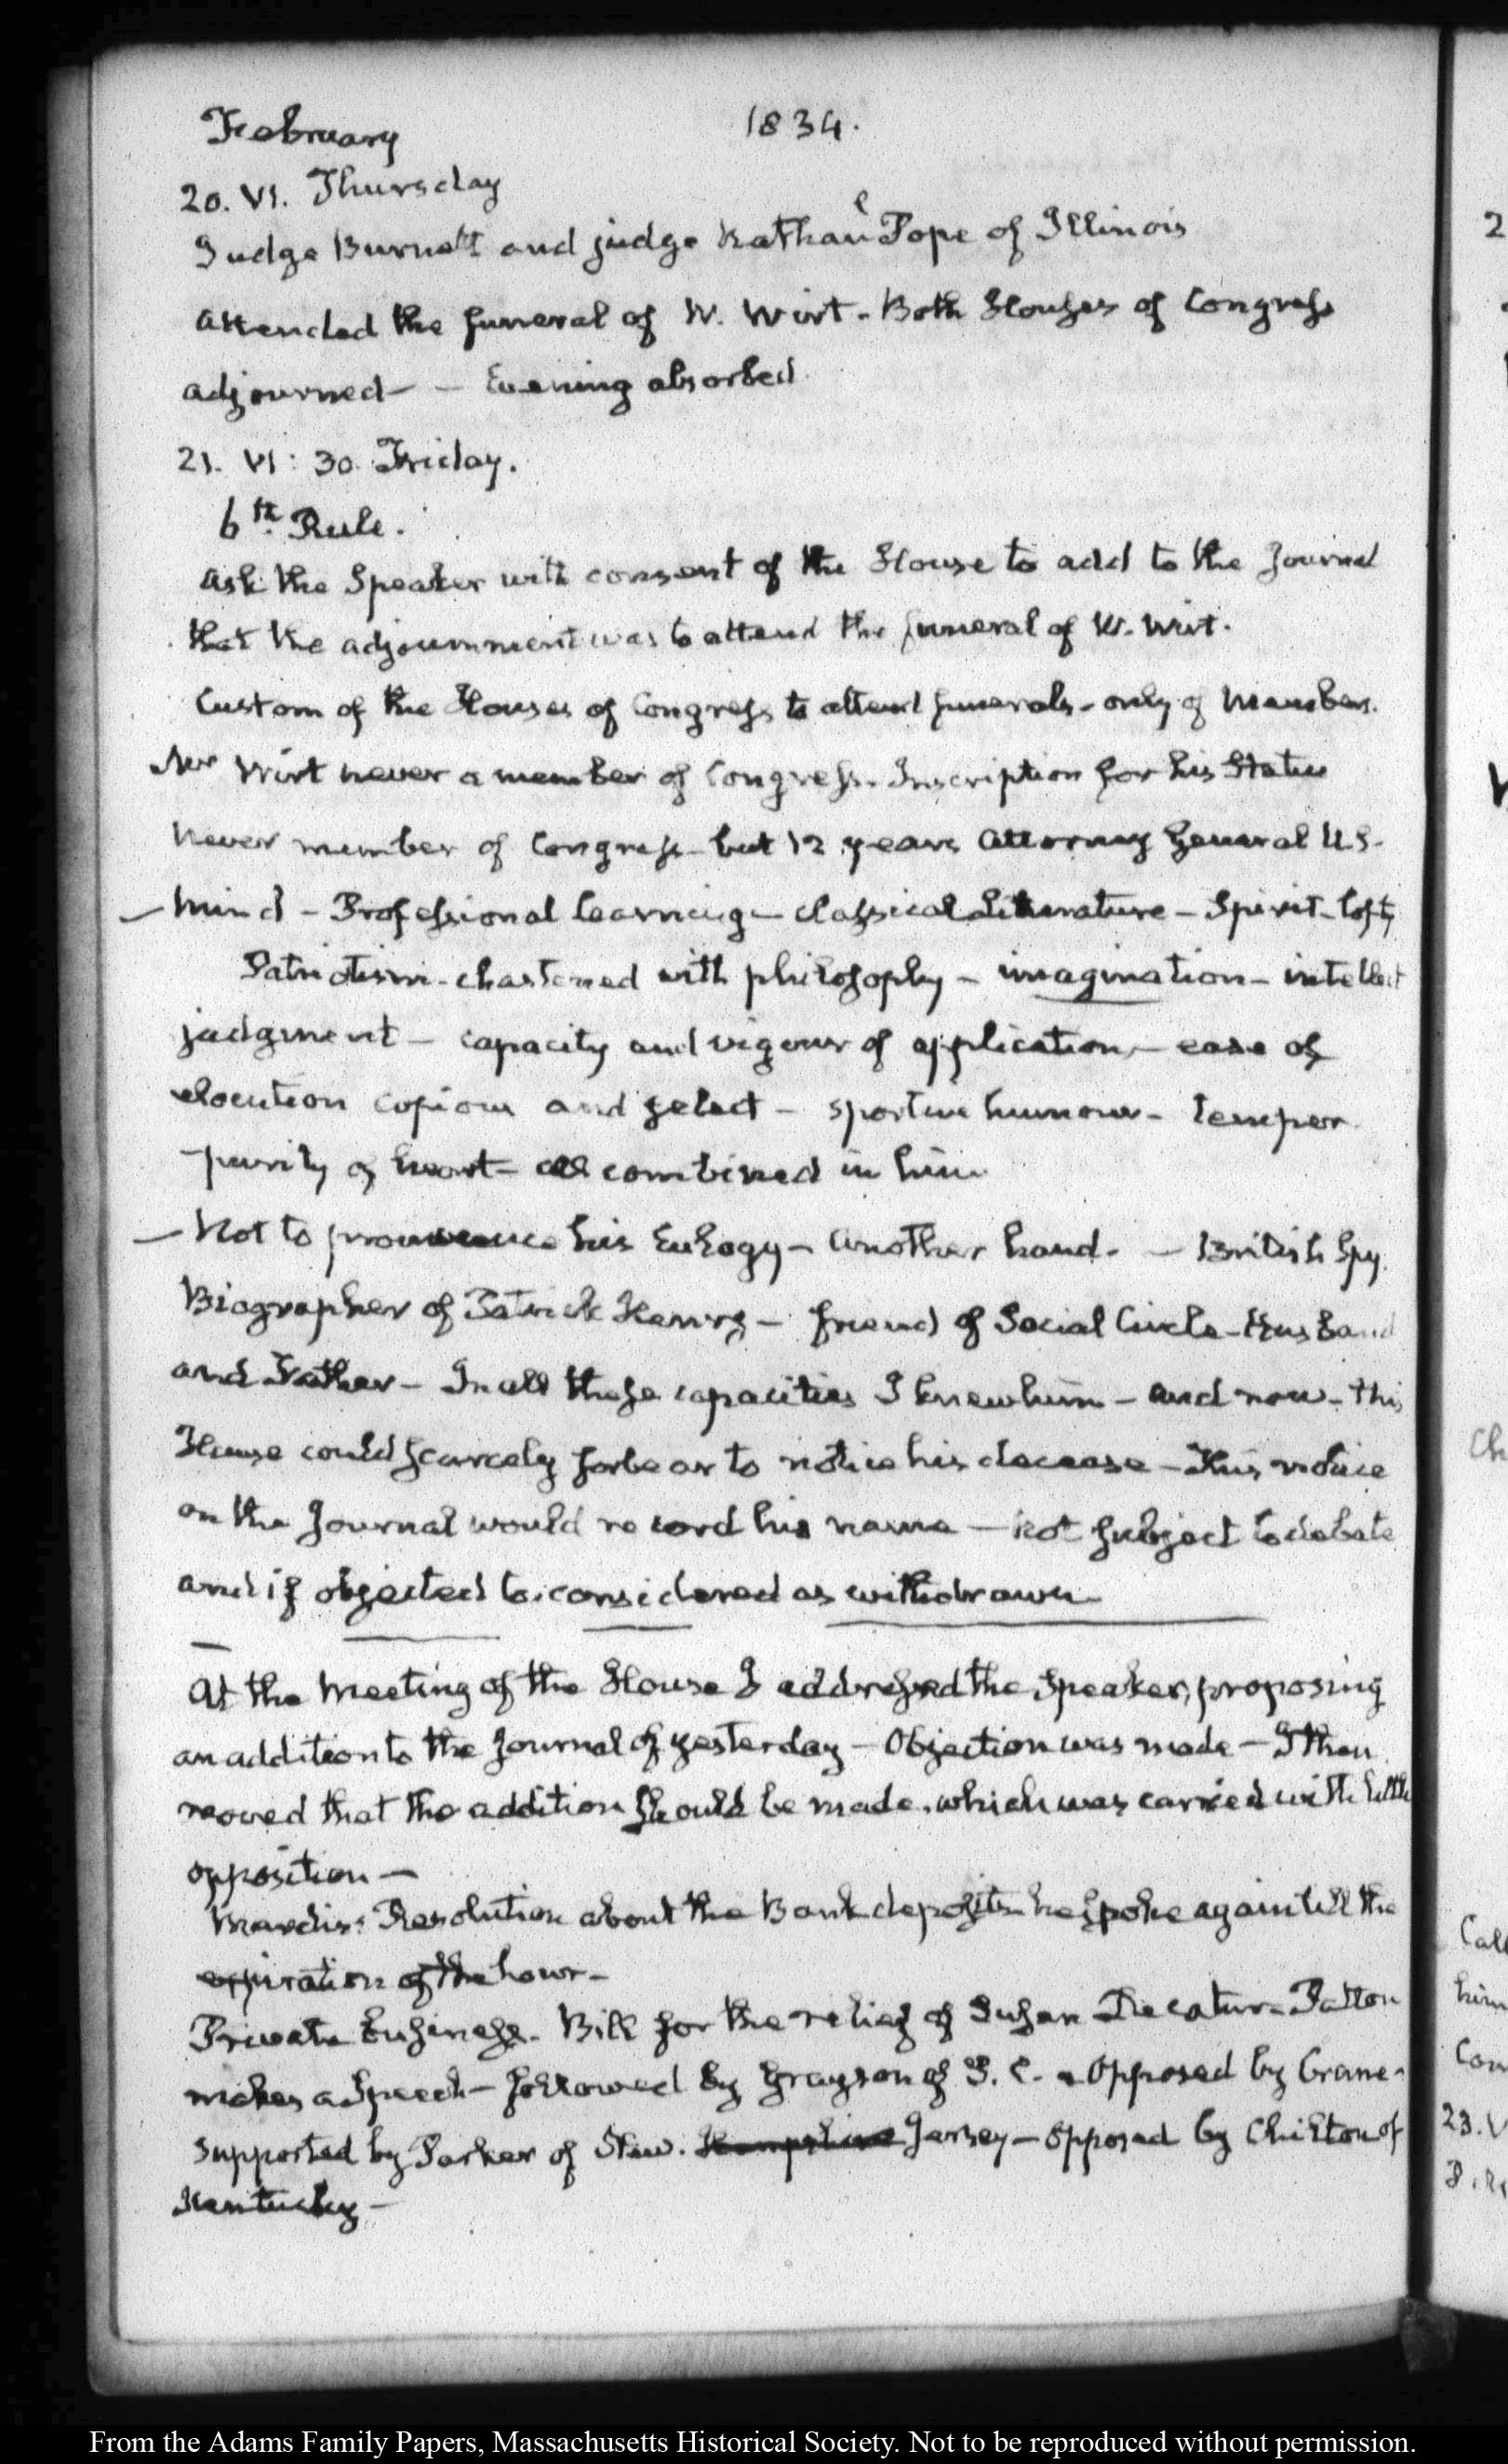 February 1834.
20. VI. Thursday
Judge Burnett and judge Nathanl Pope of Illinois
attended the funeral of W. Wirt. Both Houses of Congress
adjourned — — Evening absorbed
21. VI: 30. Friday.
6th Rule.
Ask the Speaker with consent of the House to add to the Journal
that the adjournment was to attend the funeral of W. Wirt.
Custom of the Houses of Congress to attend funerals - only of Members.
Mr Wirt never a member of Congress. Inscription for his Statue
Never member of Congress but 12 years Attorney General U.S.
— Mind - Professional learning - classical Literature - Spirit - lofty
Patriotism - chastened with philosophy - imagination - intellect
judgment - capacity and vigour of application, - ease of
elocution copious and select - sportive humour - temper
purity of heart - all combined in him
— Not to pronounce his Eulogy - another hand. — British Spy.
Biographer of Patrick Henry - friend of Social Circle - Husband
and Father - In all these capacities I knew him - and now - this
House could scarcely forbear to notice his decease - This notice
on the Journal would record his name — not subject to debate
and if objected to considered as withdrawn
At the Meeting of the House I addressed the Speaker, proposing
an addition to the Journal of yesterday - Objection was made - I then
moved that the addition should be made, which was carried with little
opposition —
Mardis: Resolution about the Bank deposits he spoke again till the
expiration of the hour -
Private business. Bill for the relief of Susan Decatur - Patton
makes a Speech - followed by Grayson of S. C. - Opposed by Crane -
supported by Parker of New. Hampshire Jersey - opposed by Chilton of
Kentucky -
2
Ch
Call
him
Con
23. V
From the Adams Family Papers, Massachusetts Historical Society. Not to be reproduced without permission.